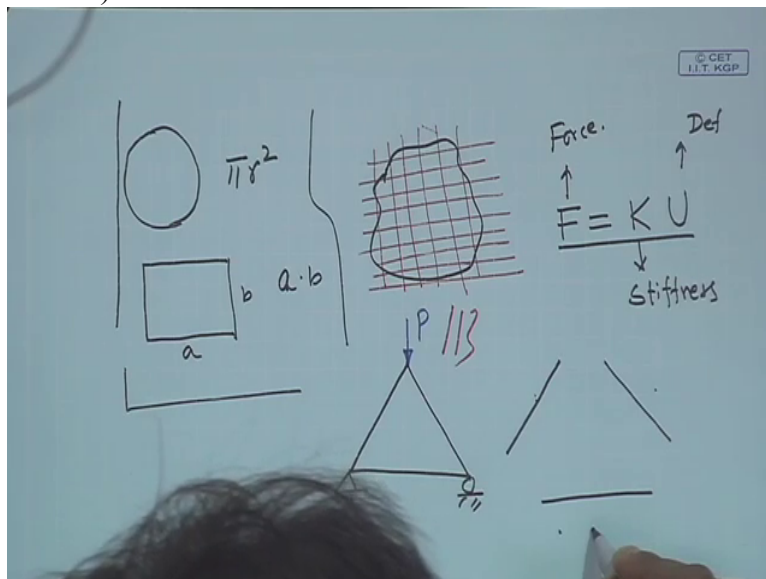 © CET
I.I.T. KGP
πr²
b
a·b
a
Force.
Def
F = K U
Stiffness
P
113